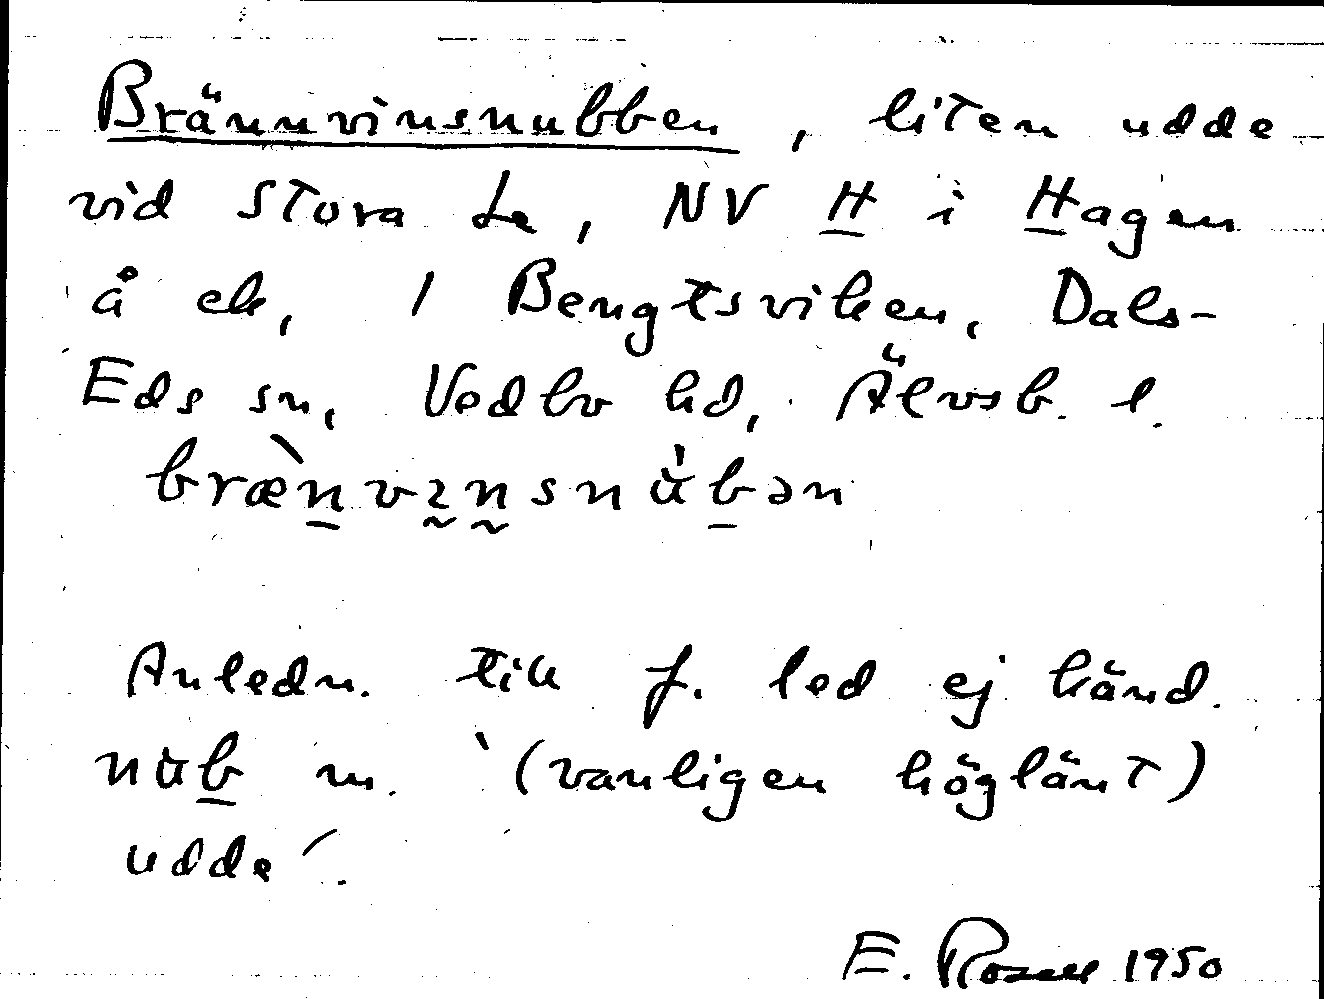 Brännvinsnubben, liten udde
vid Stora Le, NV H i Hagen
å ek, 1 Bengtsviken, Dals-
Eds sn, Vedbo hd, Älvsb. l.
bræ̀n̲vɪ̰n̰snu̇̀b̲ən
Anledn. till f. led ej känd.
nu̇b̲ m. ‵(vanligen höglänt)
udde′.
E. Rosell 1950